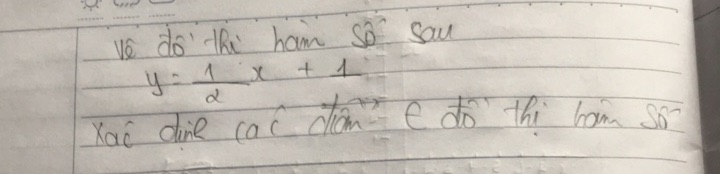 Vẽ đồ thị hàm số sau
y = 1/2 x + 1
Xác định các điểm ∈ đồ thị hàm số